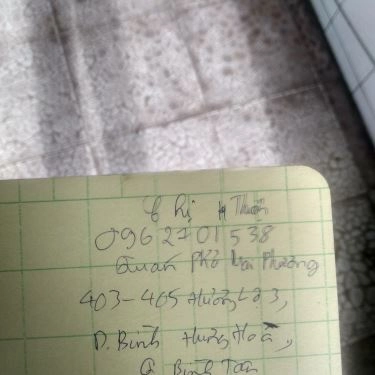 Chị Thuận
0962701538
Quán Phở Lan Phương
403-405 Hương Lộ 3,
P. Bình Hưng Hoà,
Q Bình Tân